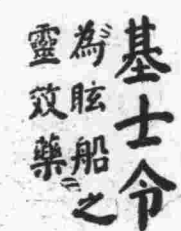 基士令
為眩船之
靈效藥